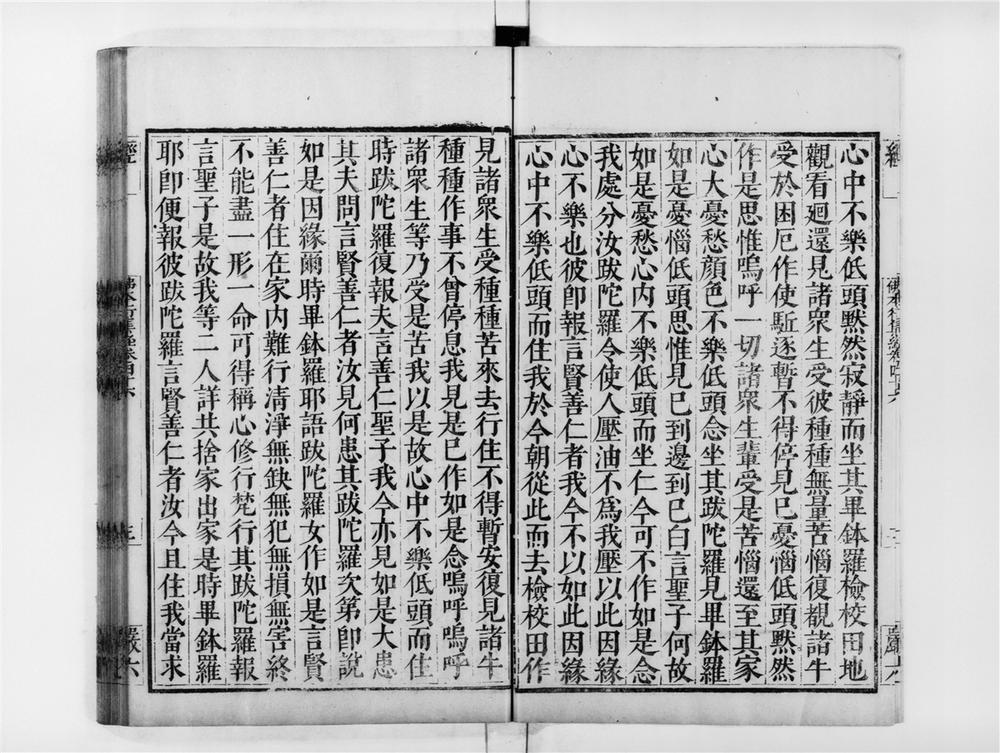 經
心中不樂低頭默然寂靜而坐其畢鉢羅檢校田地
觀看廻還見諸衆生受彼種種無量苦惱復觀諸牛
受於困厄作使駈逐暫不得停見已憂惱低頭默然
作是思惟嗚呼一切諸衆生輩受是苦惱還至其家
心大憂愁顔色不樂低頭念坐其跋陀羅見畢鉢羅
如是憂惱低頭思惟見已到邊到已白言聖子何故
如是憂愁心内不樂低頭而坐仁今可不作如是念
我處分汝跋陀羅令使人壓油不爲我壓以此因緣
心不樂也彼卽報言賢善仁者我今不以如此因緣
心中不樂低頭而住我於今朝從此而去檢校田作
見諸衆生受種種苦來去行住不得暫安復見諸牛
種種作事不曾停息我見是已作如是念嗚呼嗚呼
諸衆生等乃受是苦我以是故心中不樂低頭而住
時跋陀羅復報夫言善仁聖子我今亦見如是大患
其夫問言賢善仁者汝見何患其跋陀羅次第卽說
如是因緣爾時畢鉢羅耶語跋陀羅女作如是言賢
善仁者住在家内難行清淨無缺無犯無損無害終
不能盡一形一命可得稱心修行梵行其跋陀羅報
言聖子是故我等二人詳共捨家出家是時畢鉢羅
耶卽便報彼跋陀羅言賢善仁者汝今且住我當求
經
佛本行集經卷四十六
嚴六